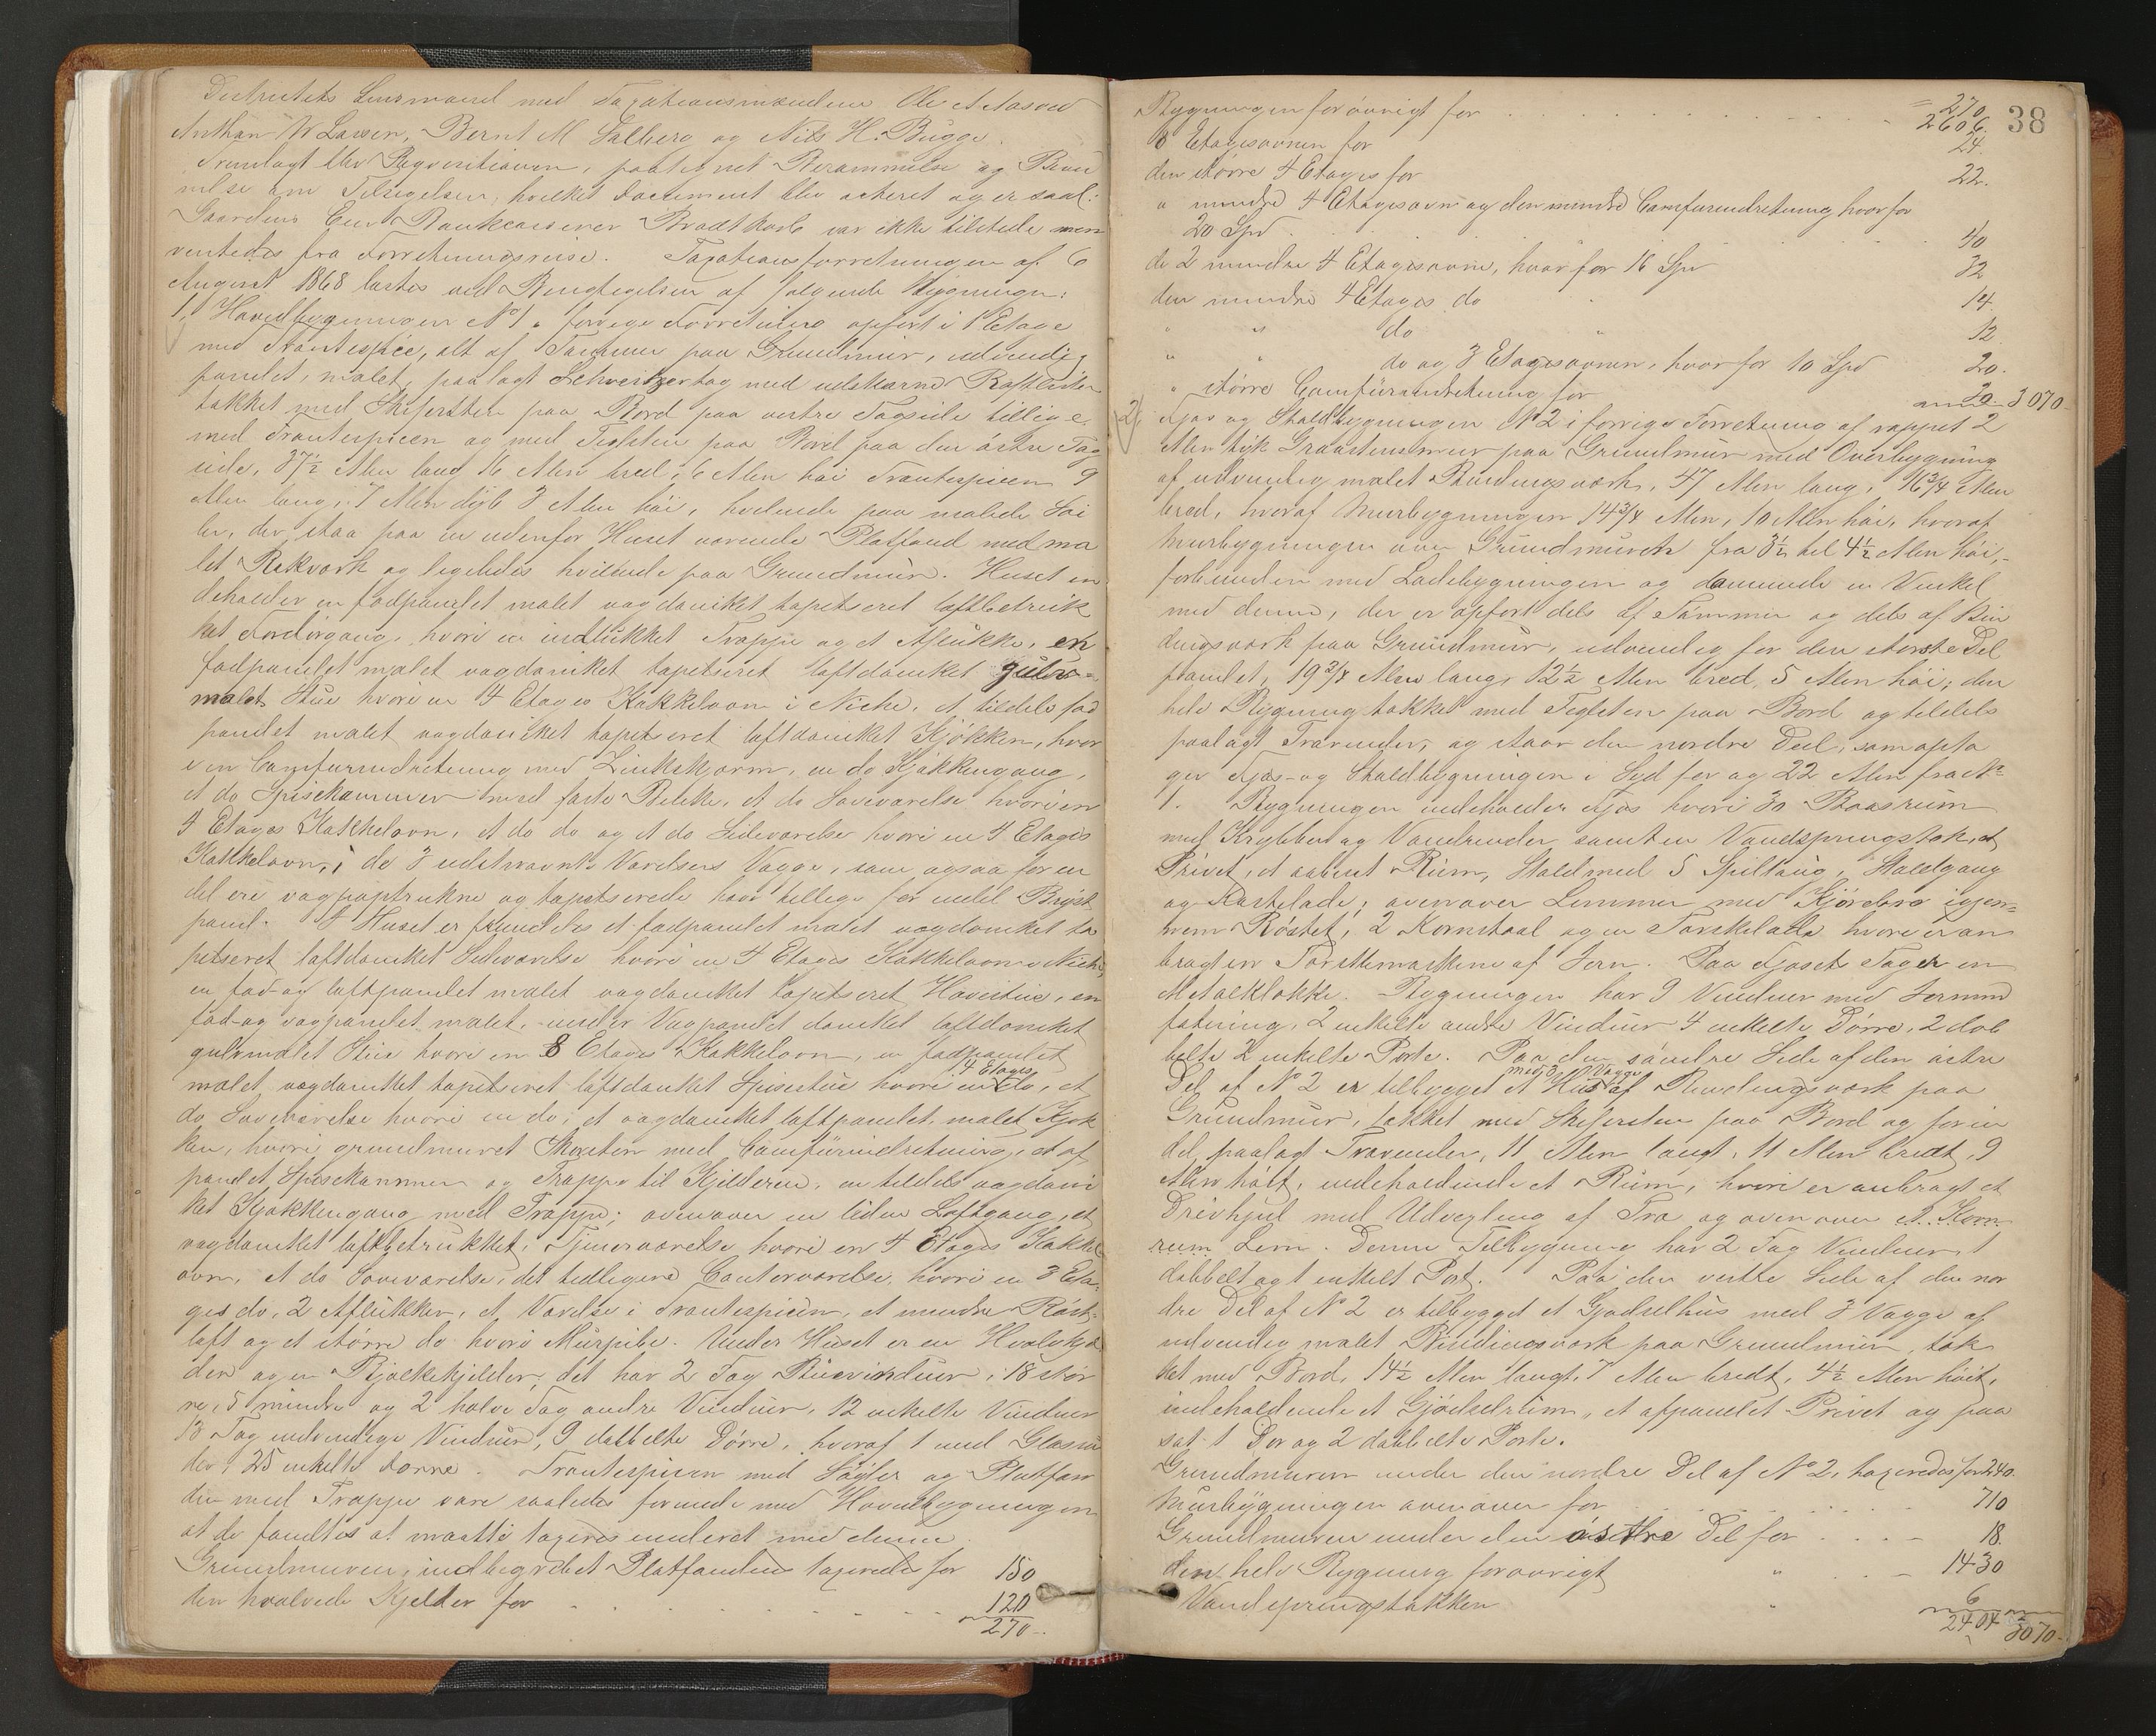 Districtets Lensmand med Taxationsmændene Ole A Aasved
Anthon W Larsen, Bernt M Salberg og Nils H. Bugge.
Fremlagt blev Reqvisitionen, paategnet Berammelse og Bevid
nelse om Tilsigelsen, hvilket Document blev acteret og er saal:
Gaardens Eier Bankcasserer Brodtkorb var ikke tilstede men
ventedes fra Forretningsreise. Taxationsforretningen af 6
August 1868 læstes ved Besigtigelsen af følgende Bygninger:
1, Hovedbygningen No 1 i forrige Forretning opført i 1 Etage
med Frontespice, alt af Tømmer paa Grundmur, udvendig
panelet, malet, paalagt Schweitzertag med udskaarne Raftlister
tækket med Skifersten paa Bord paa vestre Tagside tillige
med Frontespicen og med Teglsten paa Bord paa den østre Tag
side, 37½ Alen lang 16 Alen bred, 6 Alen høi Frontespicen 9
Alen lang, 7 Alen dyb 3 Alen høi, hvilende paa malede Søi
ler, der staa paa en udenfor Huset værende Platfond med ma
let Rækværk og ligeledes hvilende paa Grundmur. Huset in
deholder en fodpanelet malet vægdansket tapetseret loftbetruk
ket Fordørgang, hvori en indlukket Trappe og et Aflukke, en
fodpanelet malet vægdansket tapetseret loftdansket gulv-
malet Stue hvori en 4 Etages Kakkelovn i Niche, et tildels fod
panelet malet vægdansket tapetseret loftdansket Kjøkken, hvor
i en Comfurindretning med Zinkskjærm, en do Kjøkkengang,
et do Spisekammer med faste Bænke, et do Soveværelse hvori en
4 Etages Kakkelovn, et do do og et do Sideværelse hvori en 4 Etages
Kakkelovn, i de 3 sidstnævnte Værelsers Vægge, som ogsaa for en
del ere vægpaptrukne og tapetserede haves tillige for endel Bryst
panel. I Huset er fremdeles et fodpanelet malet vægdansket ta
petseret loftdansket Sideværelse hvori en 4 Etages Kakkelovn i Niche
en fod- og loftpanelet malet vægdansket tapetseret Havestue, en
fod- og vægpanelet malet, under Vægpanelet dansket loftdansket
gulvmalet Stue hvori en 8 Etages Kakkelovn, en fodpanelet
malet vægdansket tapetseret loftdansket Spisestue hvori en 4 Etages do, et
do Soveværelse hvori en do, et vægdansket loftpanelet, malet Kjøk
ken, hvori grundmuret Skorsten med Comfurindretning, et af
panelet Spisekammer og Trappe til Kjelderen, en tildels vægdans
ket Kjøkkengang med Trappe; ovenover en liden Loftgang, et
vægdansket loftbetrukket, Pigeværelse hvori en 4 Etages Kakkel
ovn, et do Soveværelse, det tidligere Contorværelse, hvori en 3 Eta-
ges do, 2 Aflukker, et Værelse i Frontespicen, et mindre Røst-
loft og et større do hvori Murpibe. Under Huset er en Hvælvkjel
der og en Bjælkekjelder, det har 2 Fag Buevinduer, 18 stør
re, 5 mindre og 2 halve Fag andre Vinduer, 12 enkelte Vinduer
13 Fag indvendige Vinduer, 9 dobbelte Dørre, hvoraf 1 med Glasru
der, 25 enkelte Dørre. Frontespicen med Søyler og Platfon
den med Trappe vare saaledes forenede med Hovedbygningen
at de fandtes at maatte taxeres underet med denne
Grundmuren, indbegrebet Platfondens taxeredes for 150
den hvælvede Kjelder for 120
270.
38
= 270
Bygningen forøvrigt for 2606.
8 Etagesovnen for 24.
den større 4 Etages for 22.
" mindre 4 Etagesovn og den mindre Comfurindretning hvorfor
20 Spd 40
de 2 mindre 4 Etagesovne, hvorfor 16 Spd 32
den mindre 4 Etages do 14.
" " do " 12
" " do og 3 Etagesovnen, hvorfor 10 Spd 20.
" større Comfurindretning for 30 3070.
2, Fjøs og Staldbygningen No 2 i forrige Forretning af rappet 2
Alen tyk Graastensmur paa Grundmur med Overbygning
af udvendig malet Bindingsværk, 47 Alen lang, 16¾ Alen
bred, hvoraf Murbygningen 14¾ Alen, 10 Alen høi, hvoraf
Murbygningen over Grundmuren fra 3½ til 4½ Alen høi,-
forbunden med Ladebygningen og dannende en Vinkel
med denne, der er opført dels af Tømmer og dels af Bin
dingsværk paa Grundmur, udvendig for den største Del
panelet, 19¾ Alen lang, 12½ Alen bred, 5 Alen høi; den
hele Bygning tækket med Teglsten paa Bord og tildels
paalagt Trærender, og staar den nordre Deel, som opta
ger Fjøs- og Staldbygningen i Syd for og 22 Alen fra No
1. Bygningen indeholder Fjøs hvori 30 Baasrum
med Krybber og Vandrender samt en Vandspringstok, et
Privet, et aabent Rum, Stald med 5 Spiltaug, Staldgang
og Hastelade; ovenover Lemmer med Kjørebro igjen-
nem Røstet, 2 Kornstaal og en Tærskelade hvori er an
bragt en Tærskemaskine af Jern. Paa Fjøset Tag er en
Metalklokke. Bygningen har 9 Vinduer med Jernind
fatning, 2 enkelte andre Vinduer 4 enkelte Dørre, 2 dob
belte 2 enkelte Porte. Paa den søndre Side af den østre
Del af No 2 er tilbygget et Hus med 3 Vægge af Bindingsværk paa
Grundmur, tækket med Skifersten paa Bord og for en
del paalagt Trærender, 11 Alen langt, 11 Alen bredt, 9
Alen høit, indeholdende et Rum, hvori er anbragt et
Drivhjul med Udvexling af Træ og ovenover et Korn
rum Lem. Denne Tilbygning har 2 Fag Vinduer, 1
dobbelt og 1 enkelt Port. Paa den vestre Side af den nor
dre Del af No 2 er tilbygget et Gjødselhus med 3 Vægge af
udvendig malet Bindingsværk paa Grundmur, tæk
ket med Bord, 14½ Alen langt, 7 Alen bredt, 4½ Alen høit,
indeholdende et Gjødselrum, et afpanelet Privet og paa
sat 1 Dør og 2 dobbelte Porte.
Grundmuren under den nordre Del af No 2, taxeredes for 240.
Murbygningen ovenover for 710
Grundmuren under den østre Del for 18.
den hele Bygning forøvrigt " 1430
Vandspringstokken " 6
2404 3070.